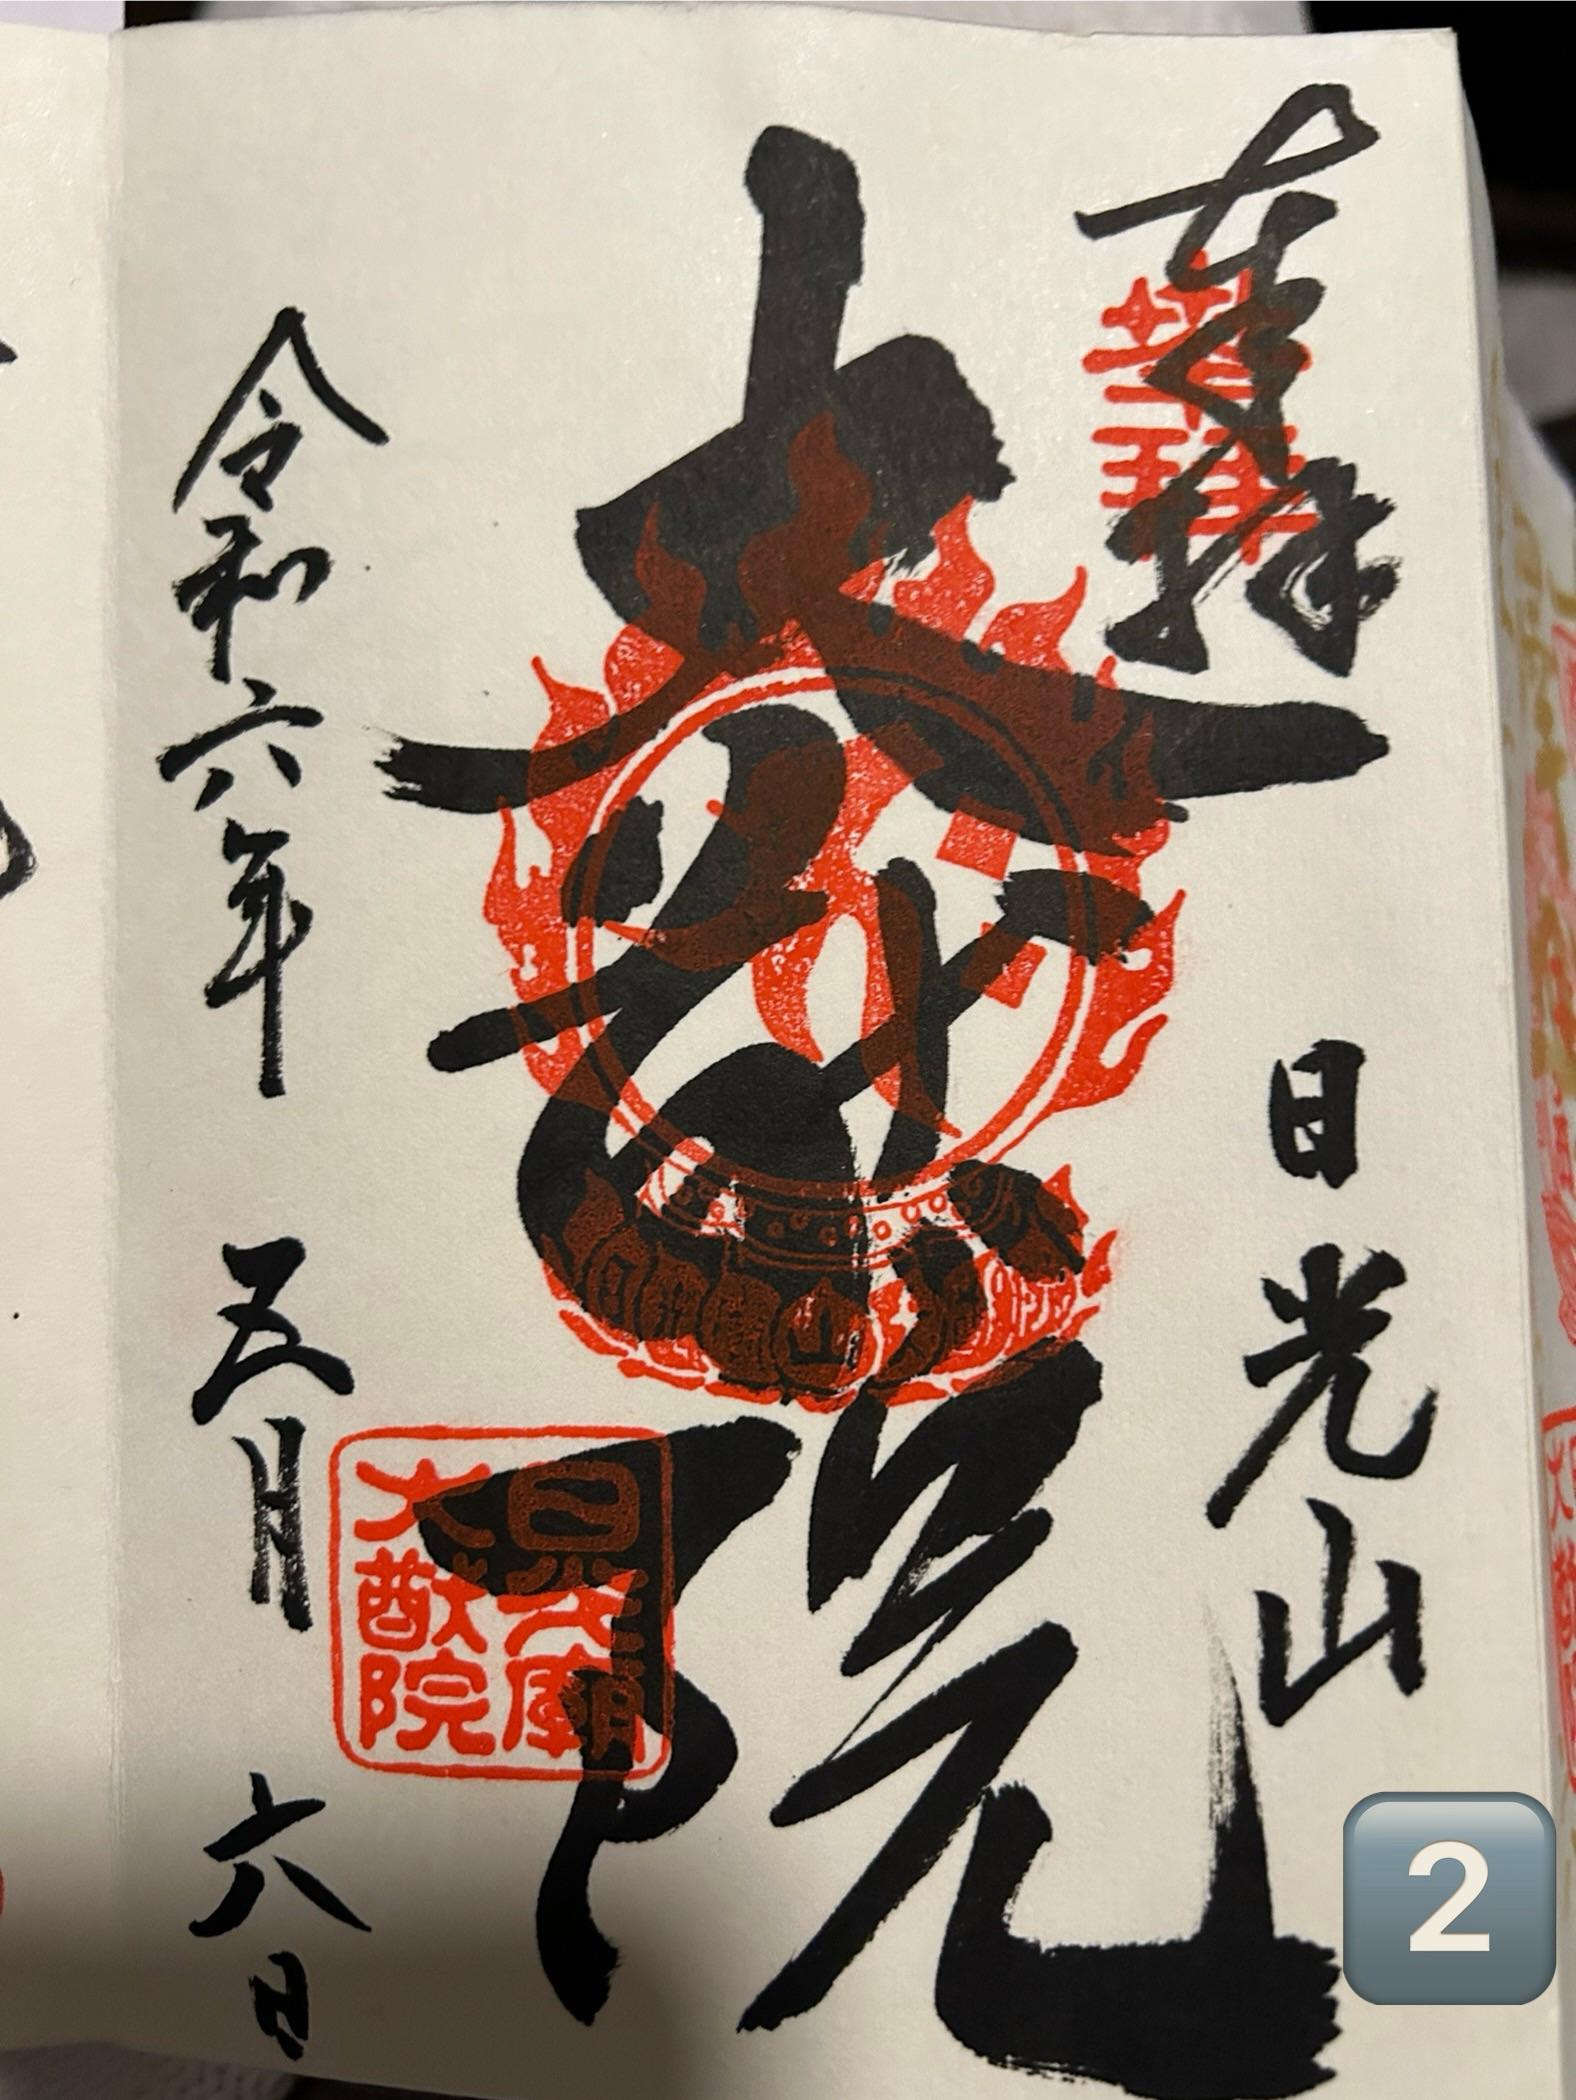 奉拝
日光山
大猷院
令和六年 五月 六日
大猷院
2